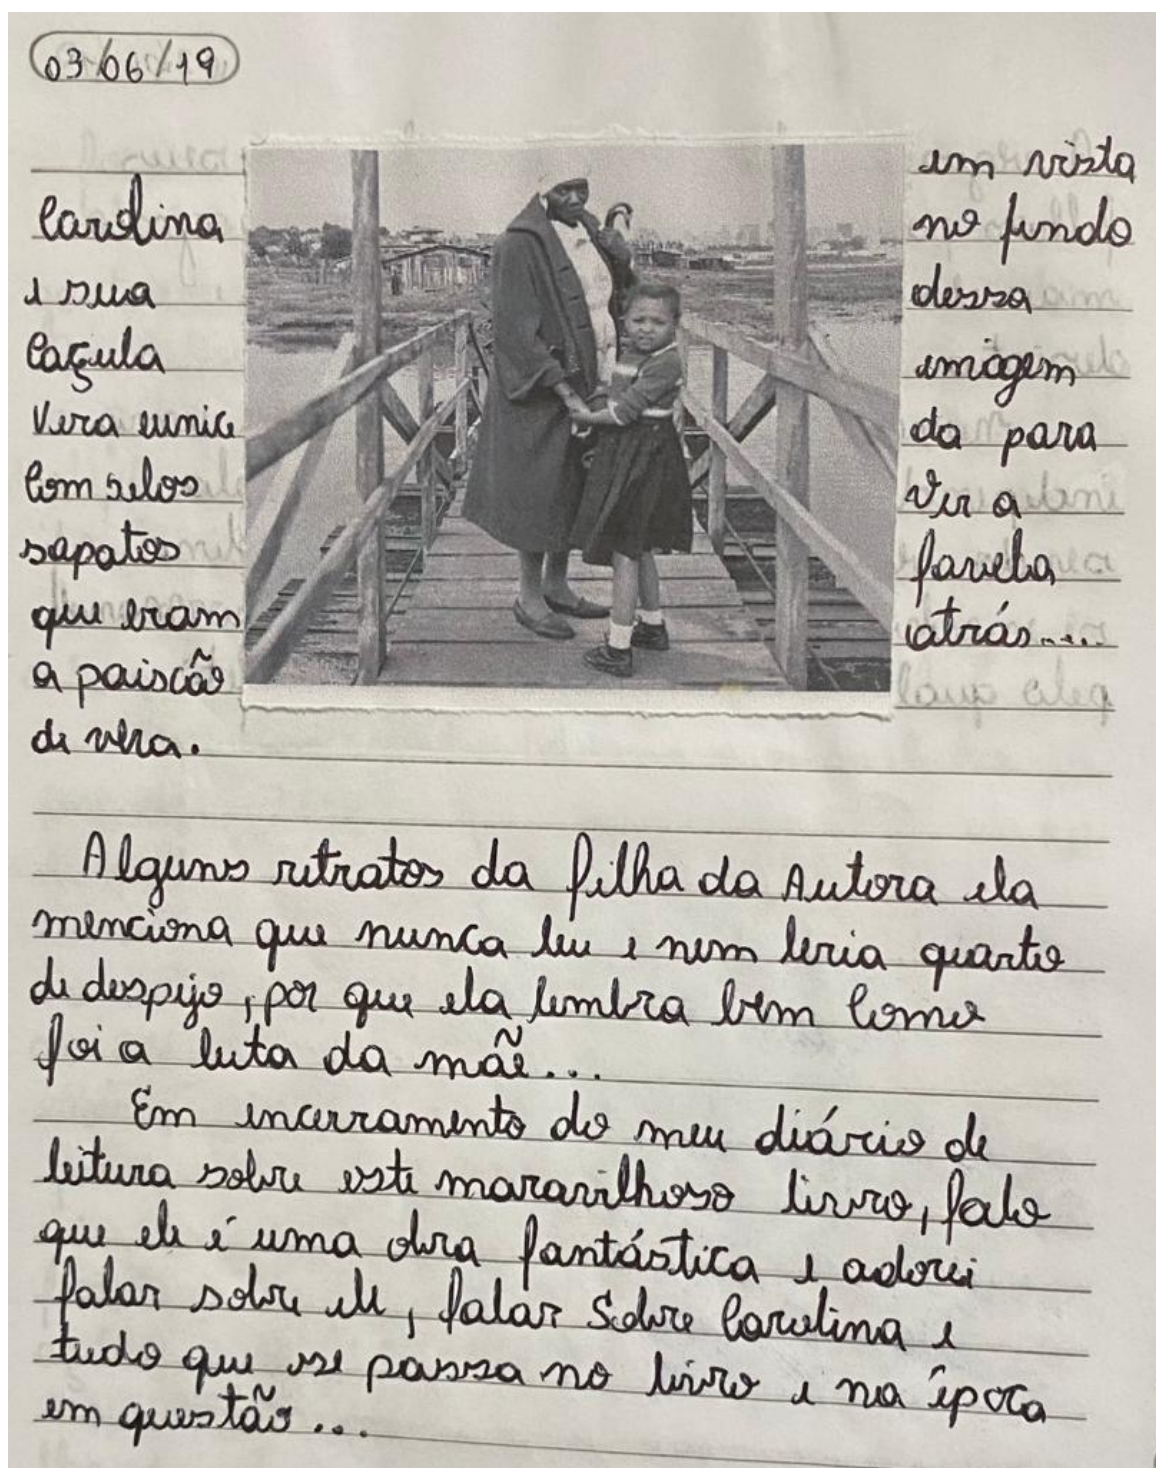 03/06/19
Carolina
e sua
Caçula
Vera eunice
Com seus
sapatos
que eram
a paiscão
de vera.
em vista
no fundo
dessa
imagem
da para
Ver a
favela
atrás....
Alguns retratos da filha da Autora ela
menciona que nunca leu e nem leria quarto
de despejo, por que ela lembra bem como
foi a luta da mãe...
Em encerramento do meu diário de
leitura sobre este maravilhoso livro, falo
que ele é uma obra fantástica e adorei
falar sobre ele, falar Sobre Carolina e
tudo que se passa no livro e na época
em questão...